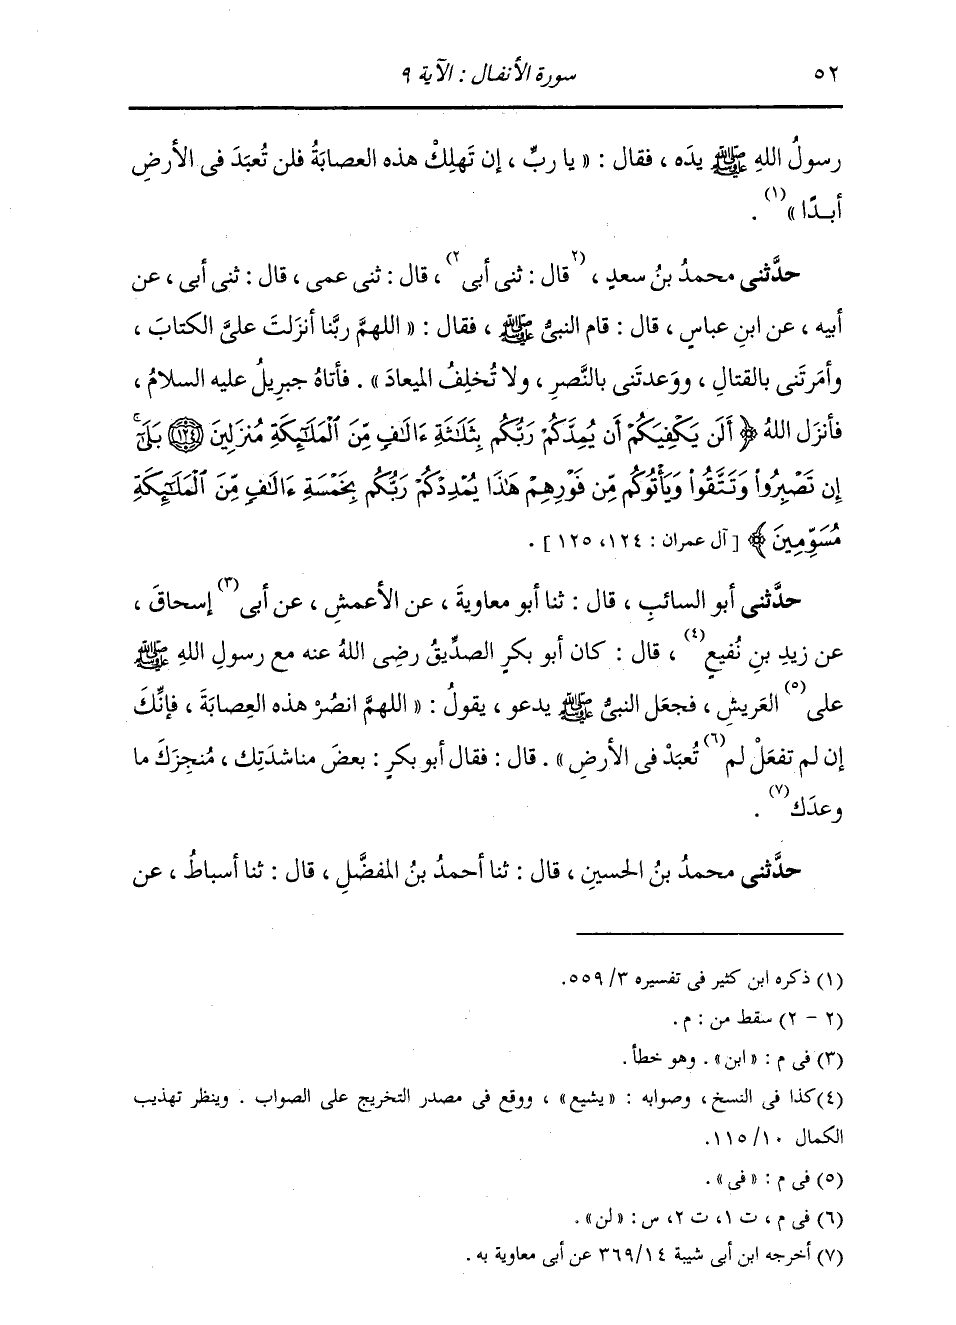 ٥٢ سورة الأنفال : الآية ٩
رسولُ اللهِ ﷺ يدَه ، فقال : « يا ربِّ ، إن تَهلِكْ هذه العصابةُ فلن تُعبَدَ فى الأرضِ
أبـدًا »(١) .
حدَّثنى محمدُ بنُ سعدٍ ، (٢قال : ثنى أبى٢) ، قال : ثنى عمى ، قال : ثنى أبى ، عن
أبيه ، عن ابنِ عباسٍ ، قال : قام النبىُّ ﷺ ، فقال : « اللهمَّ ربَّنا أنزَلتَ علىَّ الكتابَ ،
وأمَرتَنى بالقتالِ ، ووَعدتَنى بالنَّصرِ ، ولا تُخلِفُ الميعادَ » . فأتاهُ جبريلُ عليه السلامُ ،
فأنزَل اللهُ ﴿ أَلَن يَكْفِيَكُمْ أَن يُمِدَّكُمْ رَبُّكُم بِثَلَٰثَةِ ءَالَٰفٍ مِّنَ ٱلْمَلَٰٓئِكَةِ مُنزَلِينَ ﴿١٢٤﴾ بَلَىٰٓۚ
إِن تَصْبِرُوا۟ وَتَتَّقُوا۟ وَيَأْتُوكُم مِّن فَوْرِهِمْ هَٰذَا يُمْدِدْكُمْ رَبُّكُم بِخَمْسَةِ ءَالَٰفٍ مِّنَ ٱلْمَلَٰٓئِكَةِ
مُسَوِّمِينَ ﴾ [ آل عمران : ١٢٤، ١٢٥ ] .
حدَّثنى أبو السائبِ ، قال : ثنا أبو معاويةَ ، عن الأعمشِ ، عن أبى(٣) إسحاقَ ،
عن زيدِ بنِ نُفيعٍ(٤) ، قال : كان أبو بكرٍ الصدِّيقُ رضِى اللهُ عنه مع رسولِ اللهِ ﷺ
على(٥) العَريشِ ، فجعَل النبىُّ ﷺ يدعو ، يقولُ : « اللهمَّ انصُرْ هذه العِصابةَ ، فإنَّكَ
إن لم تفعَلْ لم(٦) تُعبَدْ فى الأرضِ » . قال : فقال أبو بكرٍ : بعضَ مناشدَتِك ، مُنجِزَكَ ما
وعدَك(٧) .
حدَّثنى محمدُ بنُ الحسينِ ، قال : ثنا أحمدُ بنُ المفضَّلِ ، قال : ثنا أسباطُ ، عن
(١) ذكره ابن كثير فى تفسيره ٣/ ٥٥٩.
(٢ - ٢) سقط من : م .
(٣) فى م : «ابن» . وهو خطأ .
(٤) كذا فى النسخ ، وصوابه : «يشيع» ، ووقع فى مصدر التخريج على الصواب . وينظر تهذيب
الكمال ١٠/ ١١٥.
(٥) فى م : «فى» .
(٦) فى م ، ت ١، ت ٢، س : «لن» .
(٧) أخرجه ابن أبى شيبة ١٤/ ٣٦٩ عن أبى معاوية به .